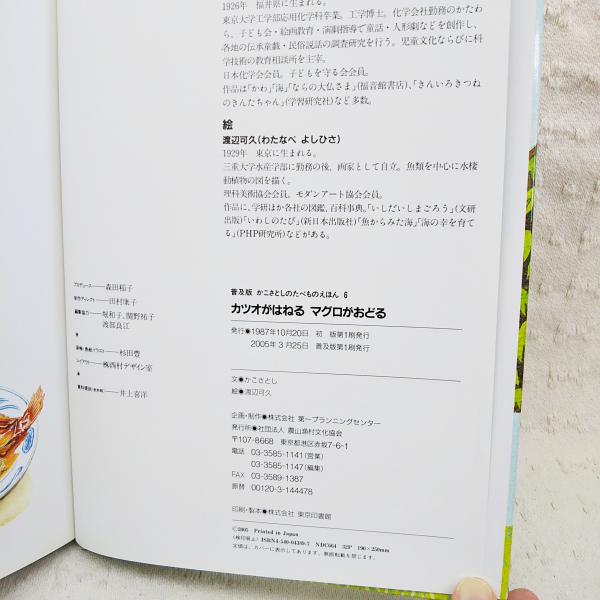 1926年　福井県に生まれる。
東京大学工学部応用化学科卒業。工学博士。化学会社勤務のかたわ
ら、子ども会・絵画教育・演劇指導で童話・人形劇などを創作し、
各地の伝承童戯・民俗説話の調査研究を行う。児童文化ならびに科
学技術の教育相談所を主宰。
日本化学会会員。子どもを守る会会員。
作品は「かわ」「海」「ならの大仏さま」(福音館書店)、「きんいろきつね
のきんたちゃん」(学習研究社)など多数。
絵
渡辺可久(わたなべ　よしひさ)
1929年　東京に生まれる。
三重大学水産学部に勤務の後、画家として自立。魚類を中心に水棲
動植物の図を描く。
理科美術協会会員。モダンアート協会会員。
作品に、学研ほか各社の図鑑、百科事典。「いしだいしまごろう」(文研
出版)「いわしのたび」(新日本出版社)「魚からみた海」「海の幸を育て
る」(PHP研究所)などがある。
プロデュース――森田稲子
制作ディレクト――田村珠子
編集協力――堀和子、関野祐子
渡部良江
――杉田豊
レイアウト――㈱西村デザイン室
――井上喜洋
普及版　かこさとしのたべものえほん　6
カツオがはねる マグロがおどる
発行●1987年10月20日　初　版第1刷発行
2005年 3月25日　普及版第1刷発行
文●かこさとし
絵●渡辺可久
企画・制作●株式会社 第一プランニングセンター
発行所●社団法人　農山漁村文化協会
〒107-8668　東京都港区赤坂7-6-1
電話　03-3585-1141(営業)
03-3585-1147(編集)
FAX　03-3589-1387
振替　00120-3-144478
印刷・製本●株式会社 東京印書館
©2005 Printed in Japan
〈検印廃止〉ISBN4-540-04389-7　NDC664　32P　190×250mm
定価は、カバーに表示してあります。無断転載を禁じます。